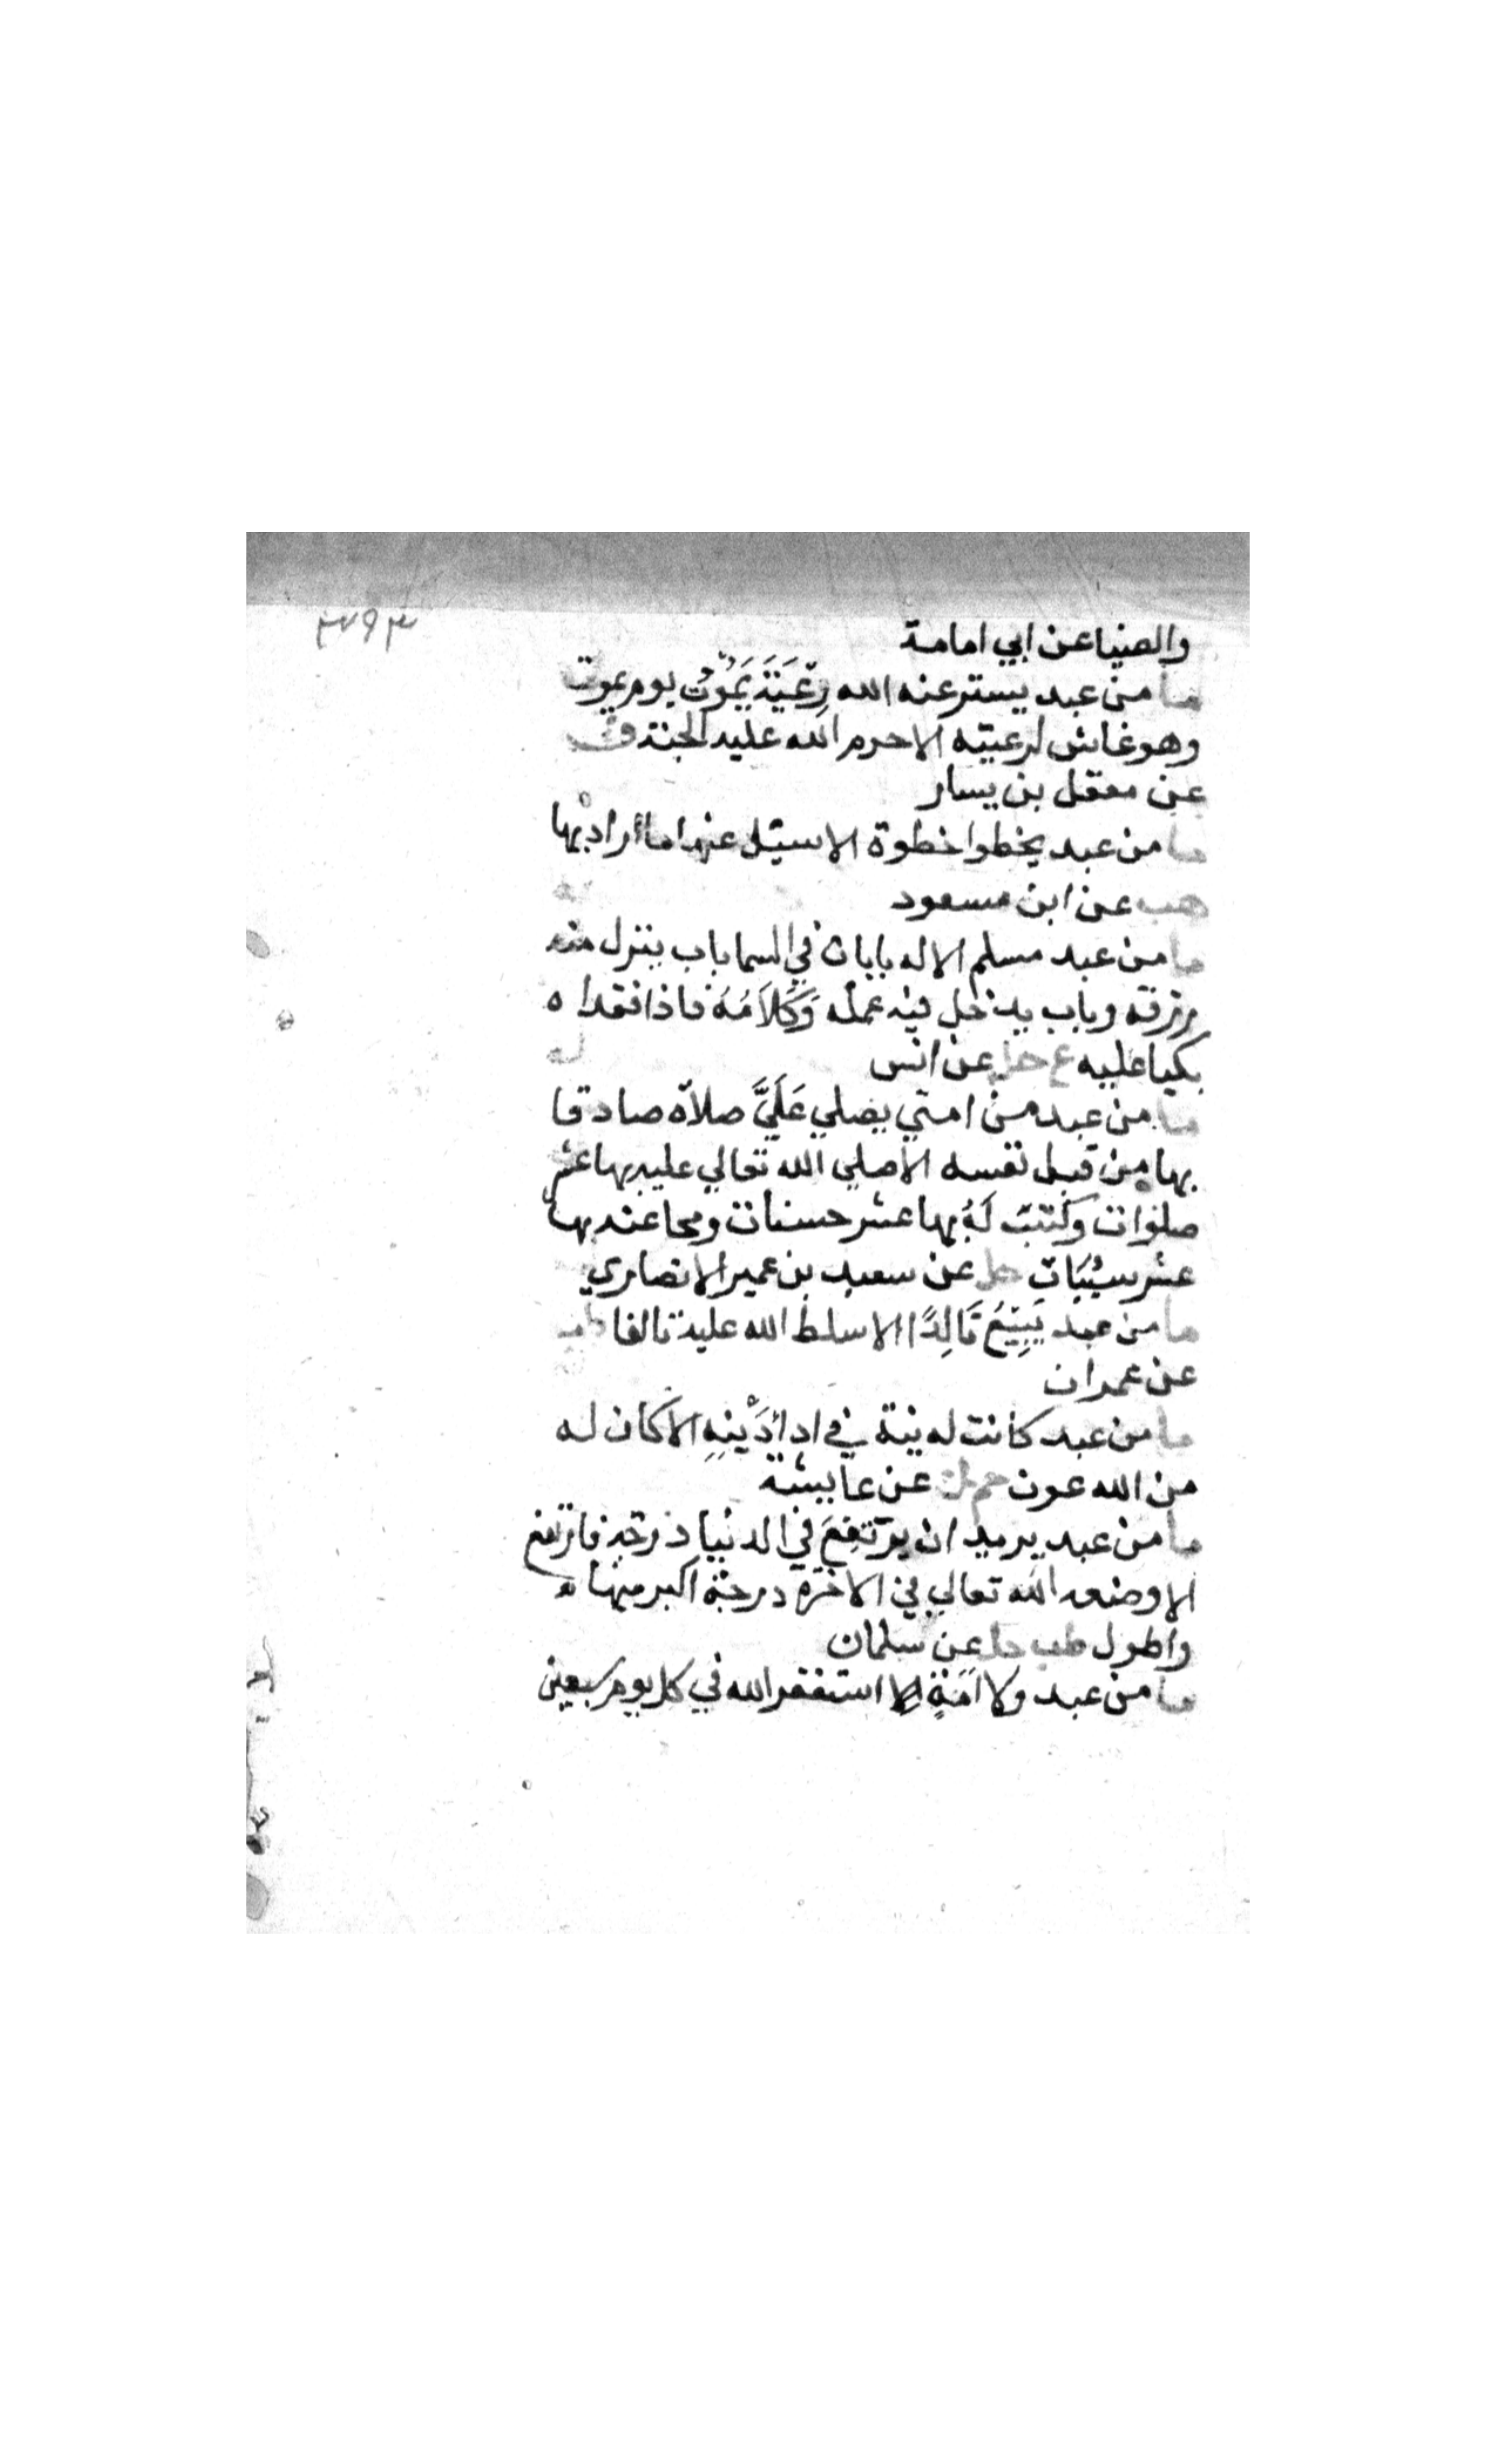 والضيا عن ابي امامة
ما من عبد يستر عنه الله رِعَيَّةَ يَمُوْتُ يوم يموت
وهو غاش لرعيته الا حرم الله عليه الجنة ق
عن معقل بن يسار
ما من عبد يخطوا خطوة الا سئل عنها ما أراد بها
هب عن ابن مسعود
ما من عبد مسلم الا له بابان في السما باب ينزل منه
رزقه وباب يدخل فيه عمله وَكَلاَمُهُ فاذا فقداه
بكيا عليه ع حل عن انس
ما من عبد من امتي يصلي عَلَيَّ صلاة صادقا
بها من قبل نفسه الا صلي الله تعالي عليه بها عشر
صلوات وكتبَ لَهُ بها عشر حسنات ومحا عنه بها
عشر سئات حل عن سعيد بن عمير الانصاري
ما من عبد يَبِيْعُ تَالِدًا الا سلط الله عليه تالفا طب
عن عمران
ما من عبد كانت له نية في ادأ دَيْنِهِ الا كان له
من الله عون حم ك عن عايشة
ما من عبد يريد ان يرتفِعَ في الدنيا درجة فارتفع
الا وضعه الله تعالي في الاخرة درجة اكبر منها
واطول طب حل عن سلمان
ما من عبد ولا اَمَةٍ استغفر الله في كل يوم سبعين